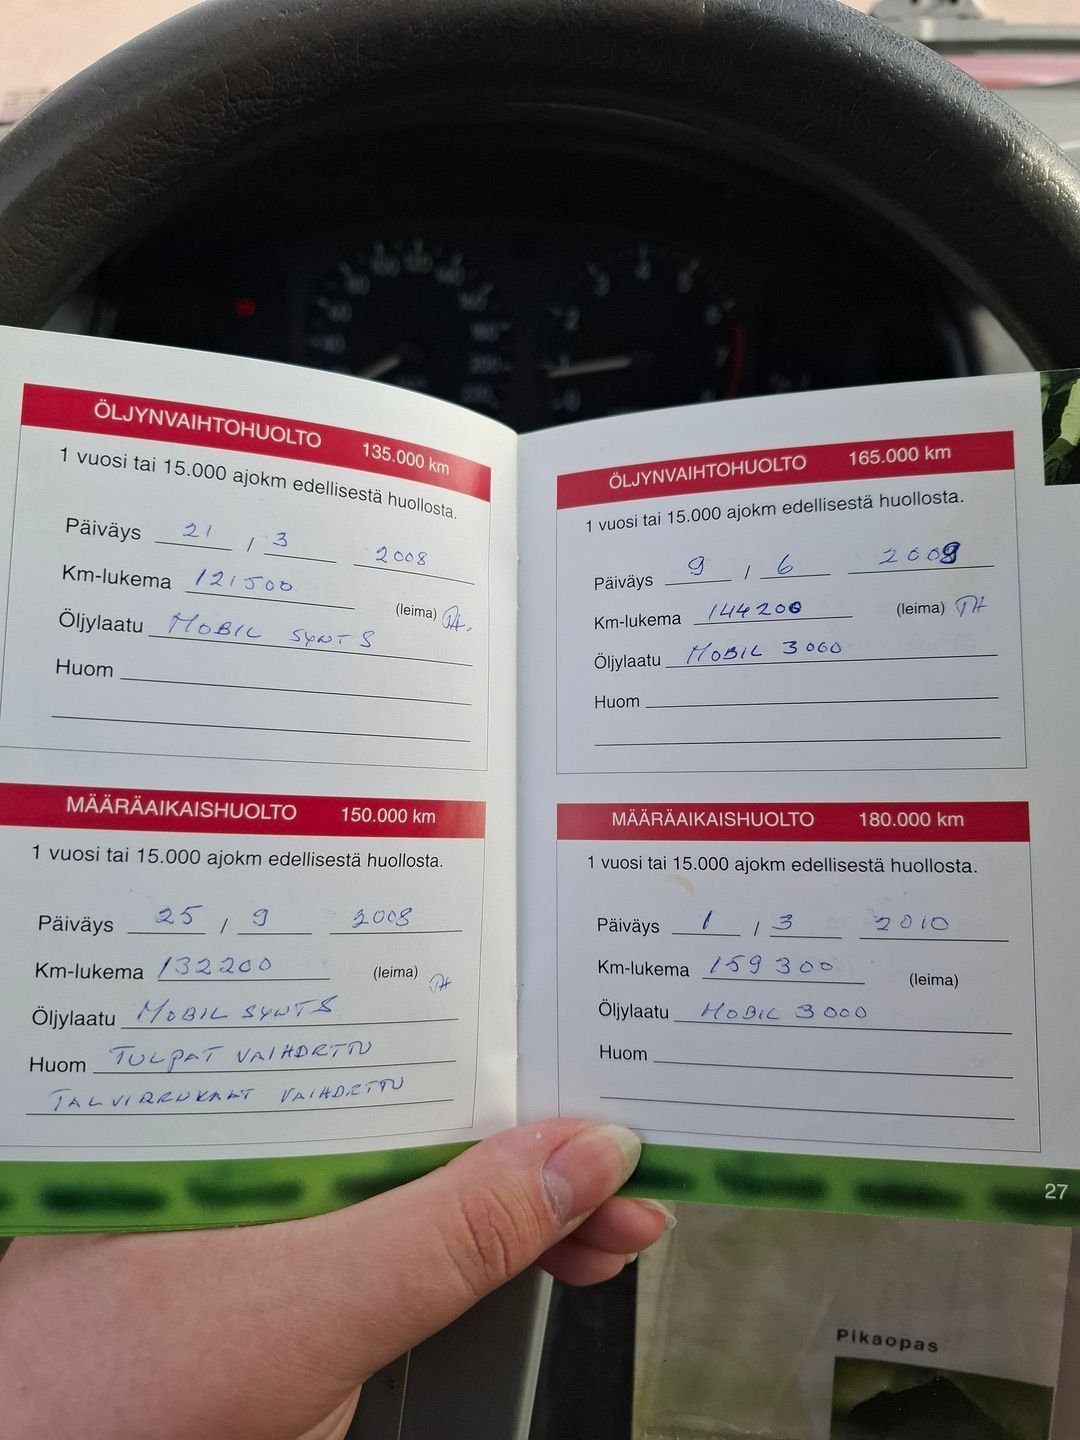 ÖLJYNVAIHTOHUOLTO 135.000 km
1 vuosi tai 15.000 ajokm edellisestä huollosta.
Päiväys 21 / 3 2008
Km-lukema 121500
(leima) TH.
Öljylaatu MOBIL SYNT S
Huom
MÄÄRÄAIKAISHUOLTO 150.000 km
1 vuosi tai 15.000 ajokm edellisestä huollosta.
Päiväys 25 / 9 2008
Km-lukema 132200
(leima) TH
Öljylaatu MOBIL SYNT S
Huom TULPAT VAIHDETTU
TALVIRENKAAT VAIHDETTU
ÖLJYNVAIHTOHUOLTO 165.000 km
1 vuosi tai 15.000 ajokm edellisestä huollosta.
Päiväys 9 / 6 2009
Km-lukema 144200
(leima) TH
Öljylaatu MOBIL 3000
Huom
MÄÄRÄAIKAISHUOLTO 180.000 km
1 vuosi tai 15.000 ajokm edellisestä huollosta.
Päiväys 1 / 3 2010
Km-lukema 159300
(leima)
Öljylaatu MOBIL 3000
Huom
27
Pikaopas